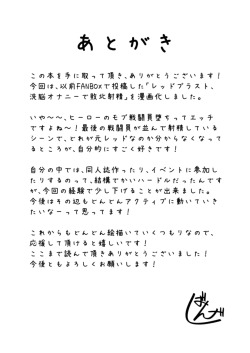 あとがき
この本を手に取って頂き、ありがとうございます！
今回は、以前FANBOXで投稿した『レッドブラスト、
洗脳オナニーで敗北射精』を漫画化しました。
いや～～、ヒーローのモブ戦闘員堕ちってエッチ
ですよね～！最後の戦闘員が並んで射精している
シーンなんて、どれが元レッドなのか分からなくなって
るところが、自分的にすごく好きです！
自分の中では、同人誌作ったり、イベントに参加し
たりするのって、結構でかいハードルだったんです
が、今回の経験で少し下げることが出来ました。
今後はその辺もどんどんアクティブに動いていき
たいなーって思ってます！
これからもどんどん絵描いていくつもりなので、
応援して頂けると嬉しいです！
ここまで読んで頂きありがとうございました！
今後ともよろしくお願いします！